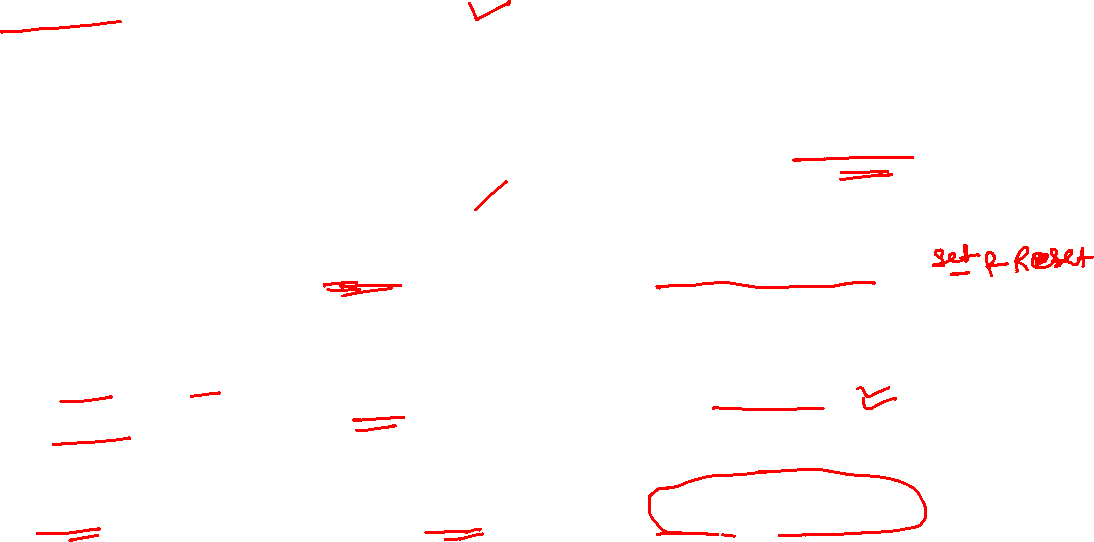 set R Reset